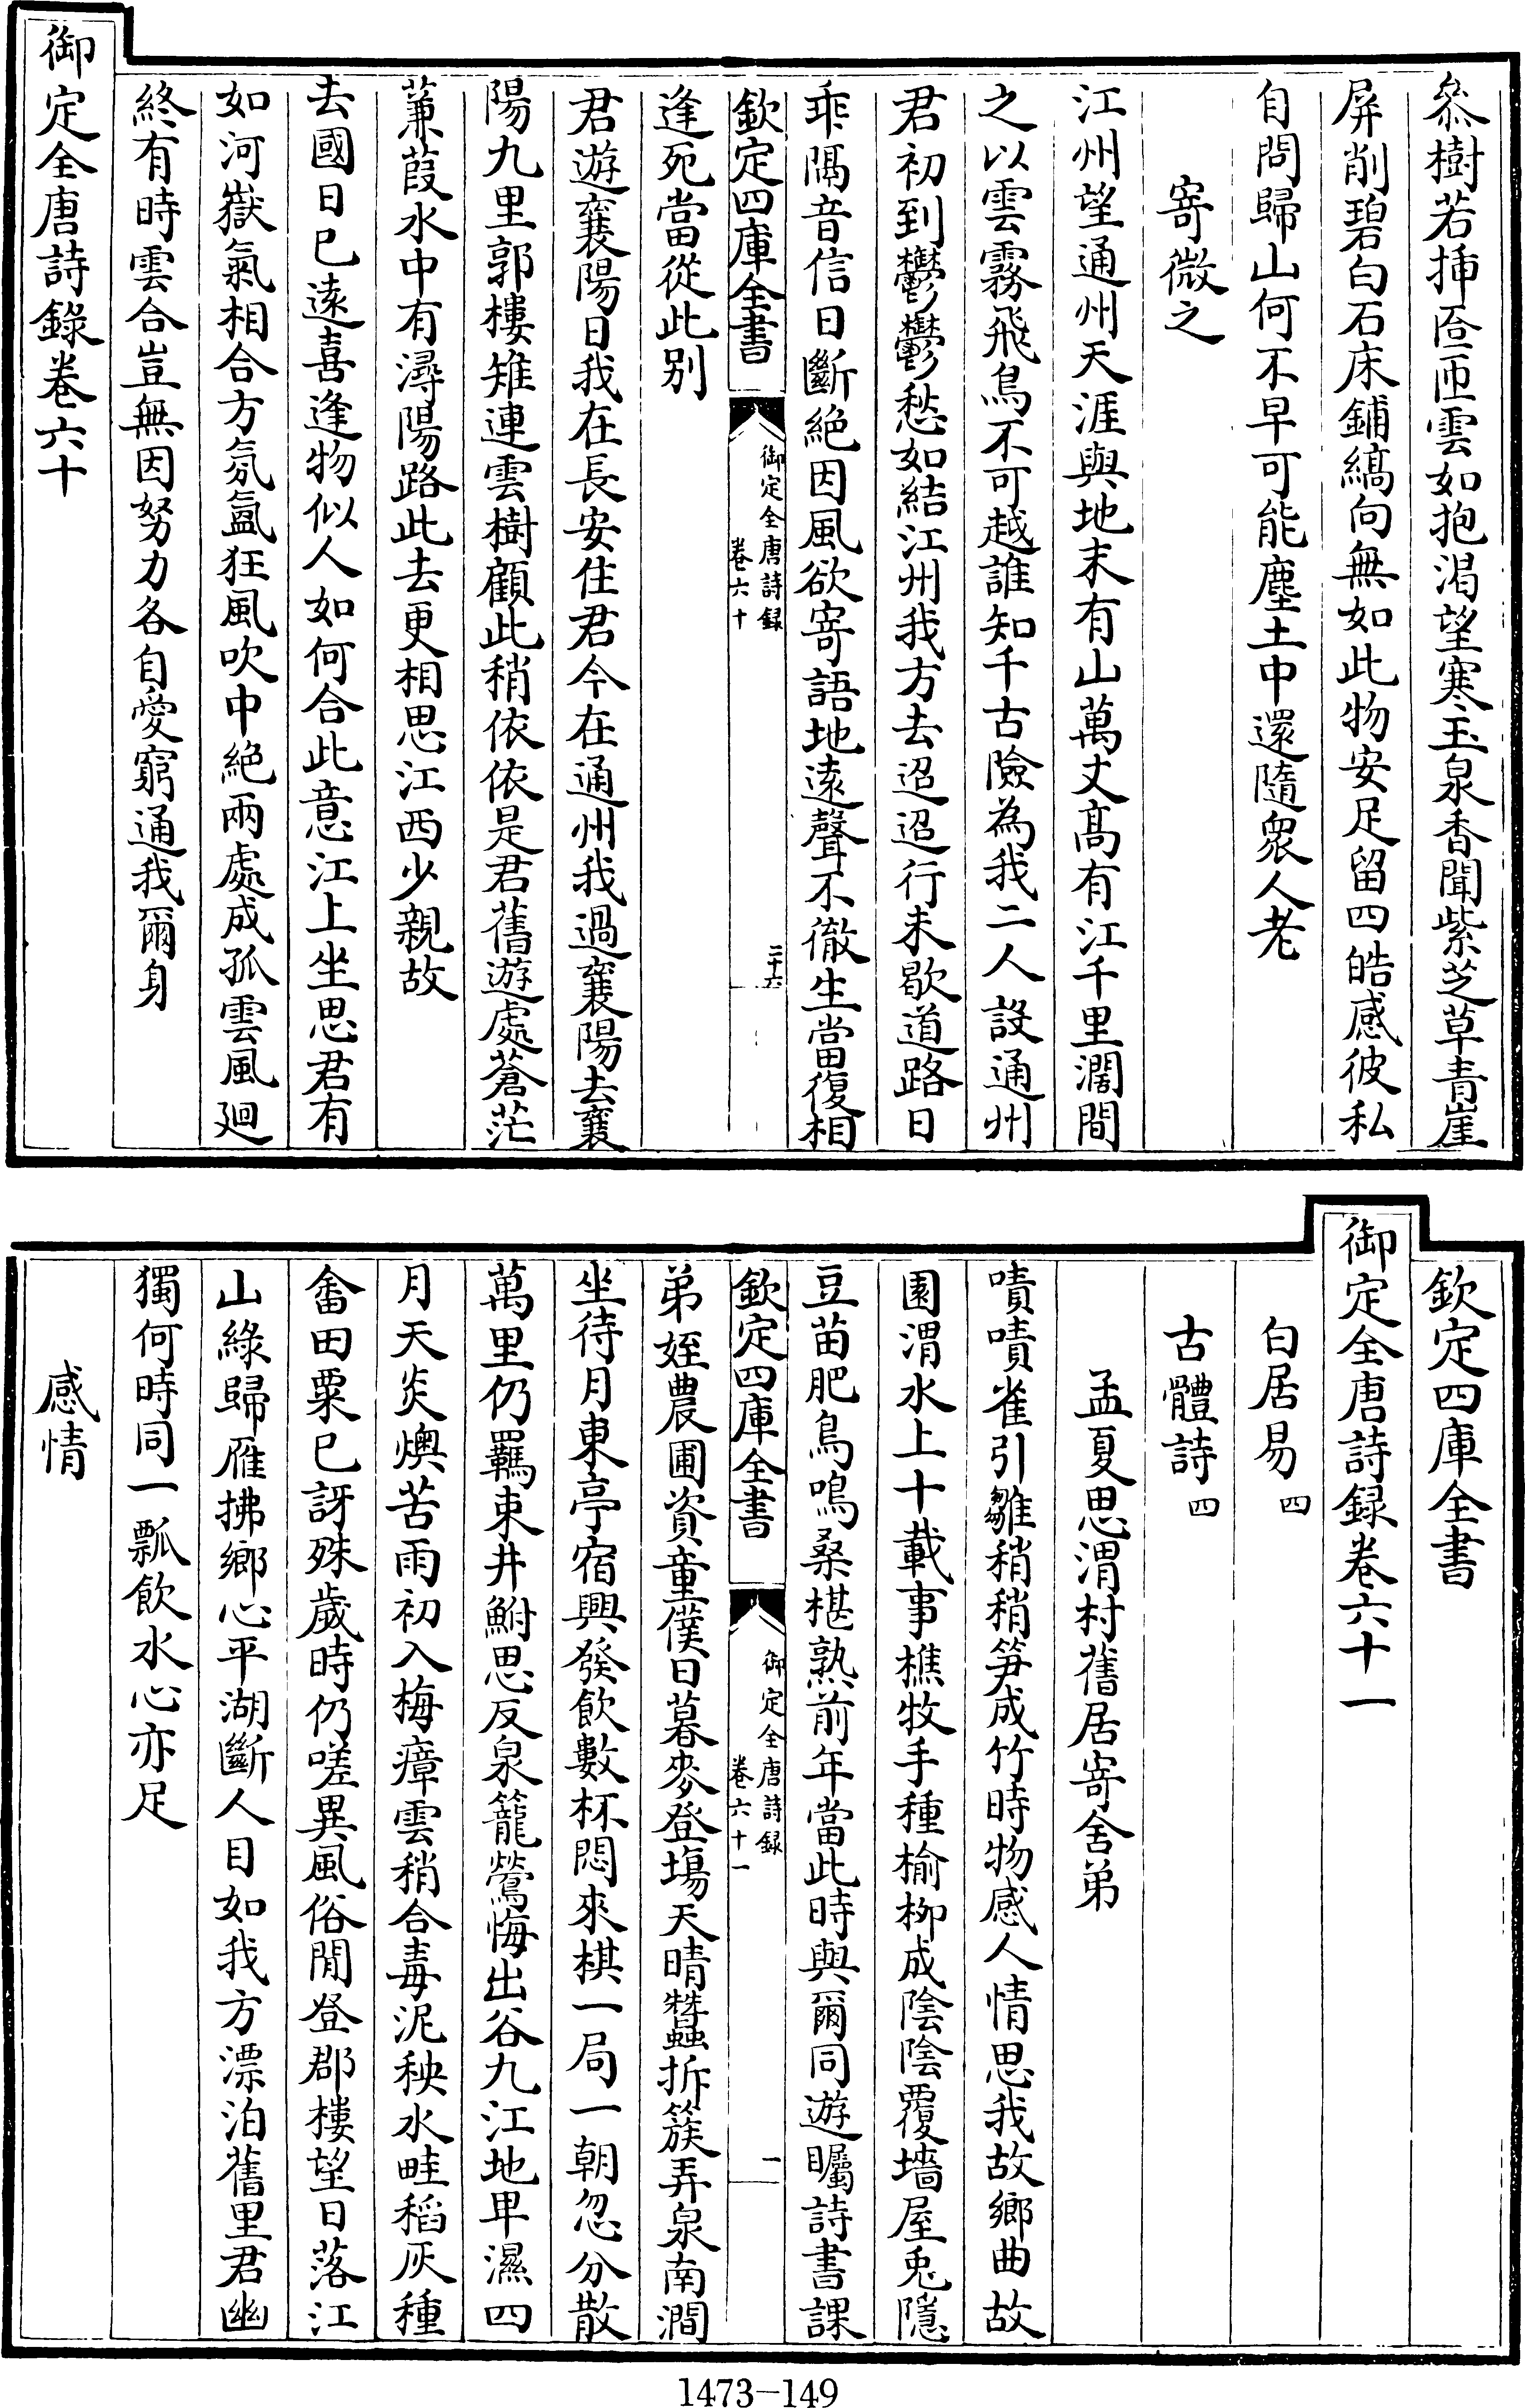 叅樹若揷匼匝雲如抱渴望寒玉泉香聞紫芝草青崖
屏削碧白石床鋪縞向無如此物安足留四皓感彼私
自問歸山何不早可能塵土中還隨衆人老
寄微之
江州望通州天涯與地末有山萬丈髙有江千里濶間
之以雲霧飛鳥不可越誰知千古險為我二人設通州
君初到鬱鬱愁如結江州我方去迢迢行未歇道路日
乖隔音信日斷絶因風欲寄語地遠聲不徹生當復相
欽定四庫全書
御定全唐詩録
卷六十
二十六
逢死當從此别
君遊襄陽日我在長安住君今在通州我過襄陽去襄
陽九里郭樓雉連雲樹顧此稍依依是君舊遊處蒼茫
蒹葭水中有潯陽路此去更相思江西少親故
去國日已遠喜逢物似人如何含此意江上坐思君有
如河嶽氣相合方氛氲狂風吹中絶兩處成孤雲風廻
終有時雲合豈無因努力各自愛窮通我爾身
御定全唐詩錄卷六十
欽定四庫全書
御定全唐詩録卷六十一
白居易 四
古體詩 四
孟夏思渭村舊居寄舍弟
嘖嘖雀引雛稍稍笋成竹時物感人情思我故鄉曲故
園渭水上十載事樵牧手種榆柳成陰陰覆墻屋兎隱
豆苗肥鳥鳴桑椹熟前年當此時與爾同遊矚詩書課
欽定四庫全書
御定全唐詩録
卷六十一
一
弟姪農圃資童僕日暮麥登塲天晴蠶拆簇弄泉南澗
坐待月東亭宿興發飲數杯悶來棋一局一朝忽分散
萬里仍羈束井鮒思反泉籠鶯悔出谷九江地卑濕四
月天炎燠苦雨初入梅瘴雲稍合毒泥秧水畦稻灰種
畬田粟已訝殊歲時仍嗟異風俗閒登郡樓望日落江
山綠歸雁拂鄉心平湖斷人目如我方漂泊舊里君幽
獨何時同一瓢飲水心亦足
感情
1473-149